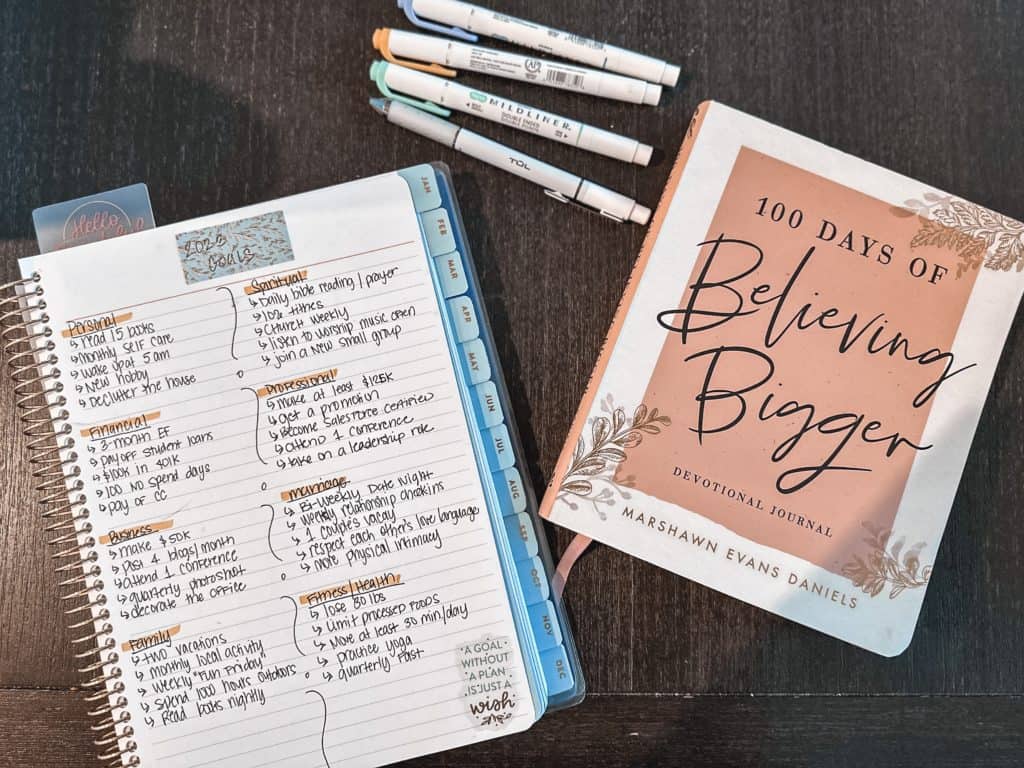 Hello
2023
GOALS
Personal
↳ read 15 books
↳ Monthly self care
↳ wake up at 5 am
↳ New hobby
↳ Declutter the house
Financial
↳ 3-month EF
↳ payoff student loans
↳ $100K in 401K
↳ 100 no spend days
↳ pay of CC
Business
↳ make $50K
↳ Post 4 blogs/month
↳ attend 1 conference
↳ quarterly photoshot
↳ decorate the office
Family
↳ two vacations
↳ monthly local activity
↳ weekly "Fun Friday"
↳ Spend 1000 hours outdoors
↳ Read books nightly
Spiritual
↳ Daily bible reading / prayer
↳ 10% tithes
↳ Church weekly
↳ listen to worship music often
↳ join a new small group
Professional
↳ make at least $125K
↳ get a promotion
↳ Become Salesforce certified
↳ attend 1 conference
↳ take on a leadership role
Marriage
↳ Bi-weekly Date night
↳ Weekly relationship checkins
↳ 1 couples vacay
↳ respect each other's love language
↳ more physical intimacy
Fitness/Health
↳ lose 30 lbs
↳ Limit processed foods
↳ Move at least 30 min/day
↳ practice yoga
↳ quarterly fast
A GOAL
WITHOUT
A PLAN
IS JUST A
wish
JAN
FEB
MAR
APR
MAY
JUN
JUL
AUG
SEP
OCT
NOV
DEC
MILDLINER
DOUBLE ENDED
TUL
100 DAYS OF
Believing
Bigger
DEVOTIONAL JOURNAL
MARSHAWN EVANS DANIELS